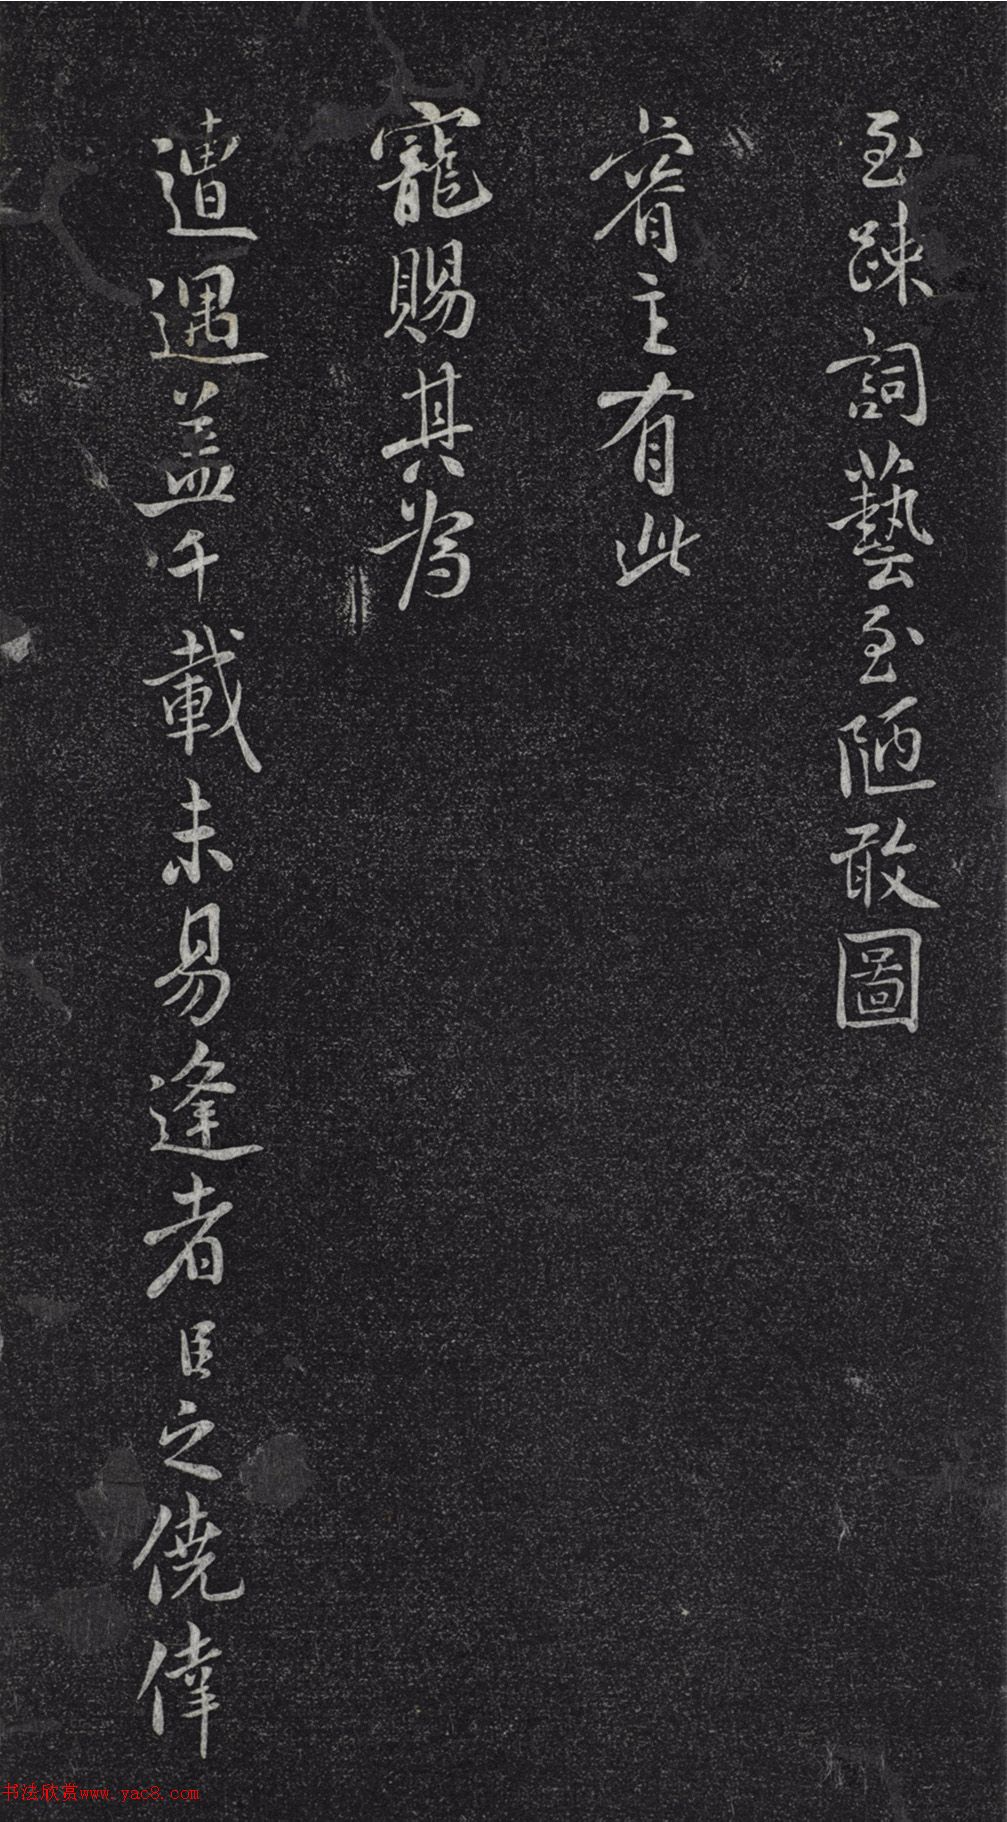 至踈詞藝至陋敢圖
睿主有此
寵賜其為
遭遇盖千載未易逢者臣之僥倖
书法欣赏www.yac8.com